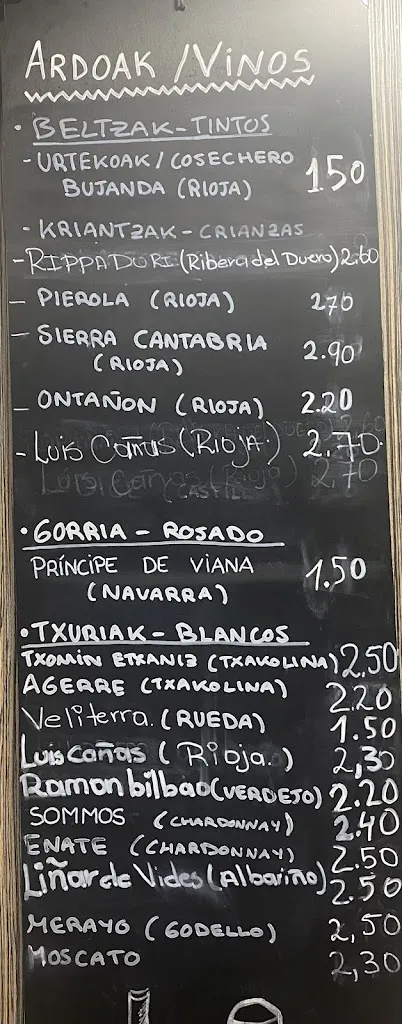 ARDOAK / VINOS
• BELTZAK - TINTOS
- URTEKOAK / COSECHERO 1.50
BUJANDA (RIOJA)
• KRIANTZAK - CRIANZAS
- RIPPADURI (Ribera del Duero) 2.60
- PIEROLA (RIOJA) 2.70
- SIERRA CANTABRIA 2.90
(RIOJA)
- ONTAÑON (RIOJA) 2.20
- Luis Cañas (RIOJA) 2.70
• GORRIA - ROSADO
PRÍNCIPE DE VIANA 1.50
(NAVARRA)
• TXURIAK - BLANCOS
TXOMIN ETXANIZ (TXAKOLINA) 2.50
AGERRE (TXAKOLINA) 2.20
Veliterra. (RUEDA) 1.50
Luis cañas (Rioja.) 2,30
Ramon bilbao (VERDEJO) 2.20
SOMMOS (CHARDONNAY) 2.40
ENATE (CHARDONNAY) 2.50
Liñar de Vides (Albariño) 2.50
MERAYO (GODELLO) 2,50
MOSCATO 2,30